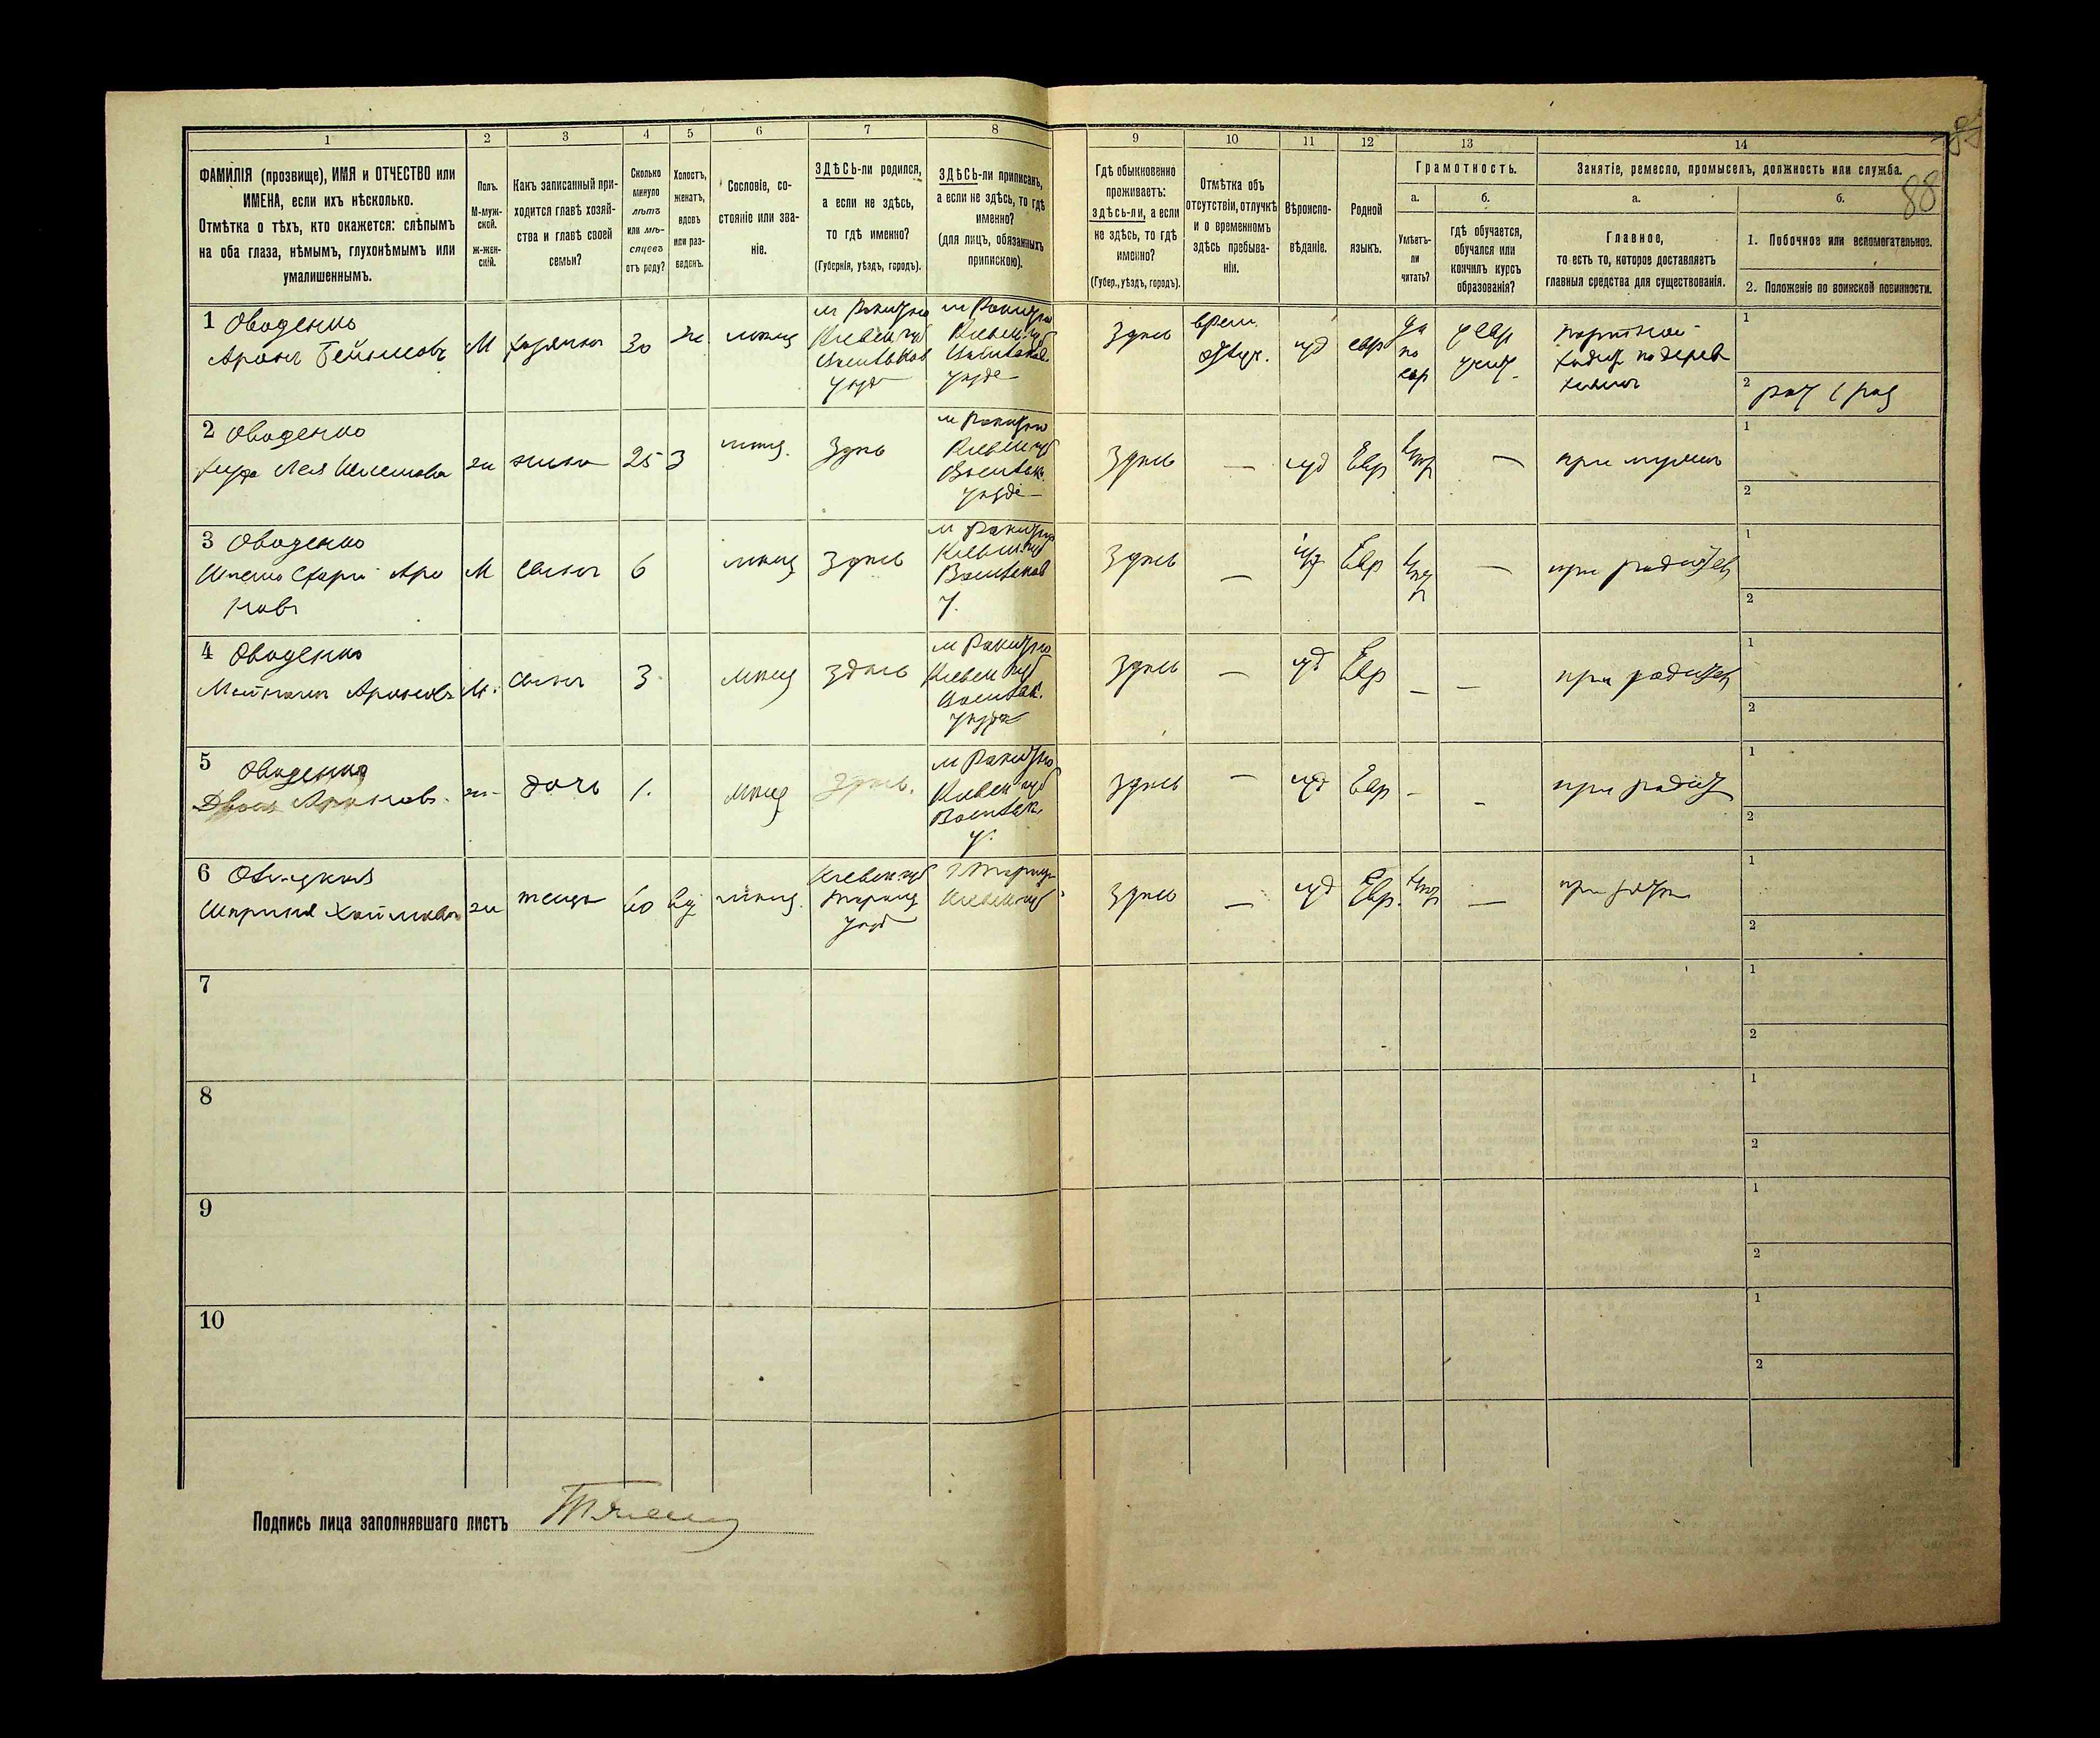 1 2 3 4 5 6 7 8 9 10 11 12 13 14
ФАМИЛІЯ (прозвище), ИМЯ и ОТЧЕСТВО или
ИМЕНА, если ихъ нѣсколько.
Отмѣтка о тѣхъ, кто окажется: слѣпымъ
на оба глаза, нѣмымъ, глухонѣмымъ или
умалишеннымъ.
Полъ.
М-муж-
ской.
Ж-жен-
скій.
Какъ записанный при-
ходится главѣ хозяй-
ства и главѣ своей
семьи?
Сколько
минуло
лѣтъ
или мѣ-
сяцевъ
отъ роду?
Холостъ,
женатъ,
вдовъ
или раз-
веденъ.
Сословіе, со-
стояніе или зва-
ніе.
ЗДѢСЬ-ли родился,
а если не здѣсь,
то гдѣ именно?
(Губернія, уѣздъ, городъ).
ЗДѢСЬ-ли приписанъ,
а если не здѣсь, то гдѣ
именно?
(для лицъ, обязанныхъ
припискою).
Гдѣ обыкновенно
проживаетъ:
здѣсь-ли, а если
не здѣсь, то гдѣ
именно?
(Губер., уѣздъ, городъ).
Отмѣтка объ
отсутствіи, отлучкѣ
и о временномъ
здѣсь пребыва-
ніи.
Вѣроиспо-
вѣданіе.
Родной
языкъ.
Грамотность.
а.
Умѣетъ-
ли
читать?
б.
гдѣ обучается,
обучался или
кончилъ курсъ
образованія?
Занятіе, ремесло, промыселъ, должность или служба.
88
а.
Главное,
то есть то, которое доставляетъ
главныя средства для существованія.
б.
1. Побочное или вспомогательное.
2. Положеніе по воинской повинности.
1 Оводенко
Аронъ
М
хозяинъ
30
ж
мѣщ
м Ракитно
Кіевск губ
уѣзд
м Ракитно
Кіевск губ
уѣзде
Здѣсь
врем.
отлуч.
іуд
евр
да
по
евр
у евр
учит
портной
1
2
2 Оводенко
Лея
ж
жена
25
З
мѣщ.
Здѣсь
м Ракитно
Кіевск губ
уѣзде
Здѣсь
—
іуд
Евр
—
при мужѣ
1
2
3 Оводенко
Аро
новъ
М
сынъ
6
мѣщ
Здѣсь
м Ракитно
Кіевск губ
у.
Здѣсь
—
іуд
Евр
—
при родител
1
2
4 Оводенко
Ароновъ
М.
сынъ
3
мѣщ
здѣсь
м Ракитно
Кіевск губ
уѣзда
Здѣсь
—
іуд
Евр
— —
при родител
1
2
5 Оводенко
Двося Аронов.
ж
дочь
1.
мѣщ
здѣсь.
м Ракитно
Кіевск губ
у.
Здѣсь
—
іуд
Евр
- -
при родит
1
2
6
Хаимова
ж
теща
60
вд
мѣщ.
Кіевск губ
уѣзд
Кіевск губ
Здѣсь
—
іуд
Евр.
—
1
2
7
1
2
8
1
2
9
1
2
10
1
2
Подпись лица заполнявшаго листъ